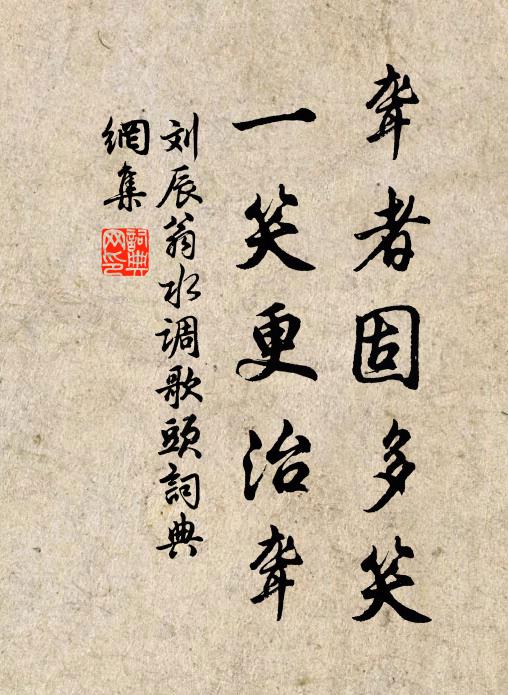 聋者固多笑
一笑更治聋
刘辰翁水调歌頭詞典
網集
詞典
网印